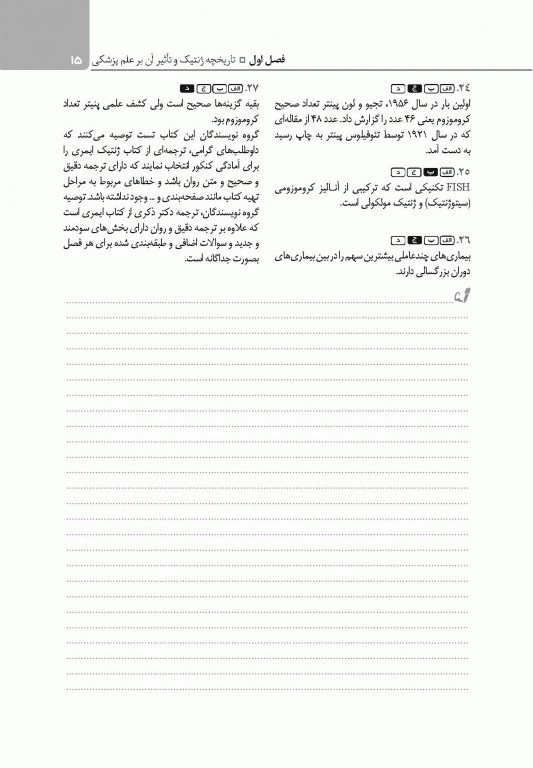 فصل اول □ تاریخچه ژنتیک و تأثیر آن بر علم پزشکی ۱۵
۲۴. الف ب ج د
اولین بار در سال ۱۹۵۶، تجیو و لون پینتر تعداد صحیح
کروموزوم یعنی ۴۶ عدد را گزارش داد. عدد ۴۸ از مقاله‌ای
که در سال ۱۹۲۱ توسط تئوفیلوس پینتر به چاپ رسید
به دست آمد.
۲۵. الف ب ج د
FISH تکنیکی است که ترکیبی از آنالیز کروموزومی
(سیتوژنتیک) و ژنتیک مولکولی است.
۲۶. الف ب ج د
بیماری‌های چندعاملی بیشترین سهم را در بین بیماری‌های
دوران بزرگسالی دارند.
۲۷. الف ب ج د
بقیه گزینه‌ها صحیح است ولی کشف علمی پنیتر تعداد
کروموزوم بود.
گروه نویسندگان این کتاب تست توصیه می‌کنند که
داوطلب‌های گرامی، ترجمه‌ای از کتاب ژنتیک ایمری را
برای آمادگی کنکور انتخاب نمایند که دارای ترجمه دقیق
و صحیح و متن روان باشد و خطاهای مربوط به مراحل
تهیه کتاب مانند صفحه‌بندی و ... وجود نداشته باشد. توصیه
گروه نویسندگان، ترجمه دکتر ذکری از کتاب ایمری است
که علاوه بر ترجمه دقیق و روان دارای بخش‌های سودمند
و جدید و سوالات اضافی و طبقه‌بندی شده برای هر فصل
بصورت جداگانه است.